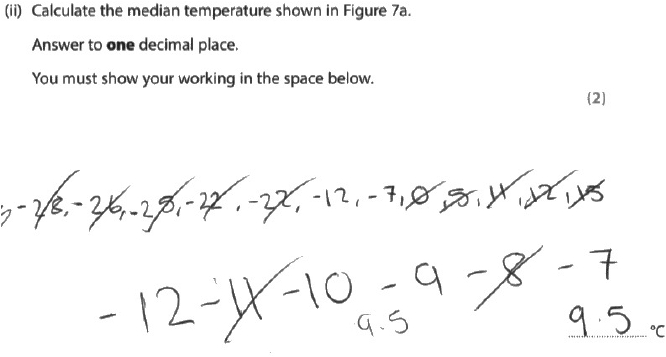 (ii) Calculate the median temperature shown in Figure 7a.
Answer to one decimal place.
You must show your working in the space below.
(2)
-28, -26, -25, -22, -22, -12, -7, 0, 5, 11, 12, 15
-12 -11 -10 -9 -8 -7
9.5
9.5 °C